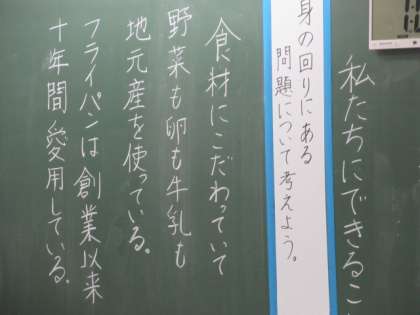 私たちにできるこ
身の回りにある
問題について考えよう。
食材にこだわっていて
野菜も卵も牛乳も
地元産を使っている。
フライパンは創業以来
十年間愛用している。